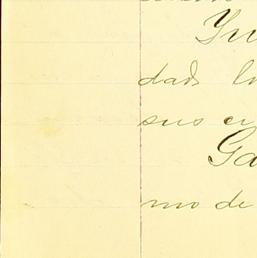 Yu
dads l
sus e
Ga
mo de